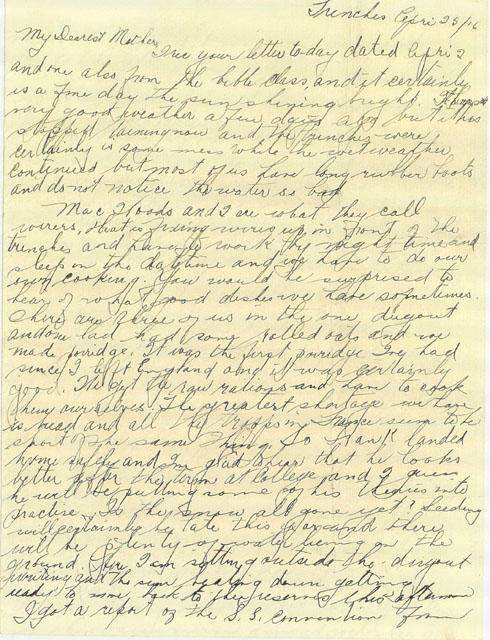 Trenches Apri 25/16
My Dearest Mother,
I rec your letter to day dated Apri 2
and one also from the bible class, and it certainly
is a fine day the sun shining bright.
very good weather a few days ago but it has
stopped raining now and the trenches were
certainly is some mess while the wet weather
continued but most of us have long rubber boots
and do not notice the water so bad
Mac Woods and I are what they call
wirers, that is fixing wires up in front of the
trenches and have to work by night time and
sleep in the daytime and we have to do our
own cooking. You would be surprised to
hear of what good dishes we have sometimes.
There are three of us in the one dugout
and one lad had some rolled oats and we
made porridge. It was the first porridge I've had
since I left England and it was certainly
good. We get the raw rations and have to cook
them ourselves. The greatest shortage we have
is bread and all the troops in France seem to be
short of the same thing. So Frank landed
home safely and I'm glad to hear that he looks
better after the term at College and I guess
he will be putting some of his theories into
practice. Is the snow all gone yet? Seeding
will certainly be late this year and there
will be plenty of water lieing on the
ground. I am sitting outside the dugout
writing and the sun beating down getting
ready to move back to the reserves this afternoon
I got a report of the S.S. Convention from